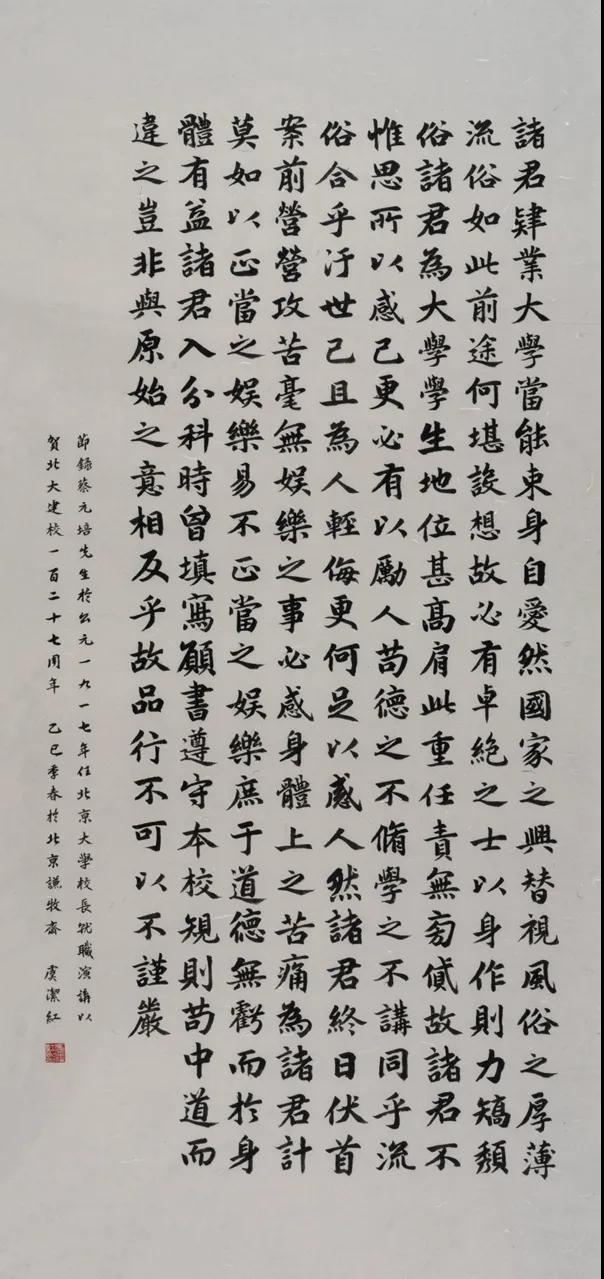 諸君肄業大學當能束身自愛然國家之興替視風俗之厚薄
流俗如此前途何堪設想故必有卓絶之士以身作則力矯頽
俗諸君為大學學生地位甚高肩此重任責無旁貸故諸君不
惟思所以感己更必有以勵人茍德之不脩學之不講同乎流
俗合乎汙世己且為人輕侮更何足以感人然諸君終日伏首
案前營營攻苦毫無娱樂之事必感身體上之苦痛為諸君計
莫如以正當之娱樂易不正當之娱樂庶于道德無虧而於身
體有益諸君入分科時曾填寫願書遵守本校規則茍中道而
違之豈非與原始之意相反乎故品行不可以不謹嚴
節録蔡元培先生於公元一九一七年任北京大學校長就職演講以
賀北大建校一百二十七周年 乙巳季春於北京謙牧齋 虞潔紅